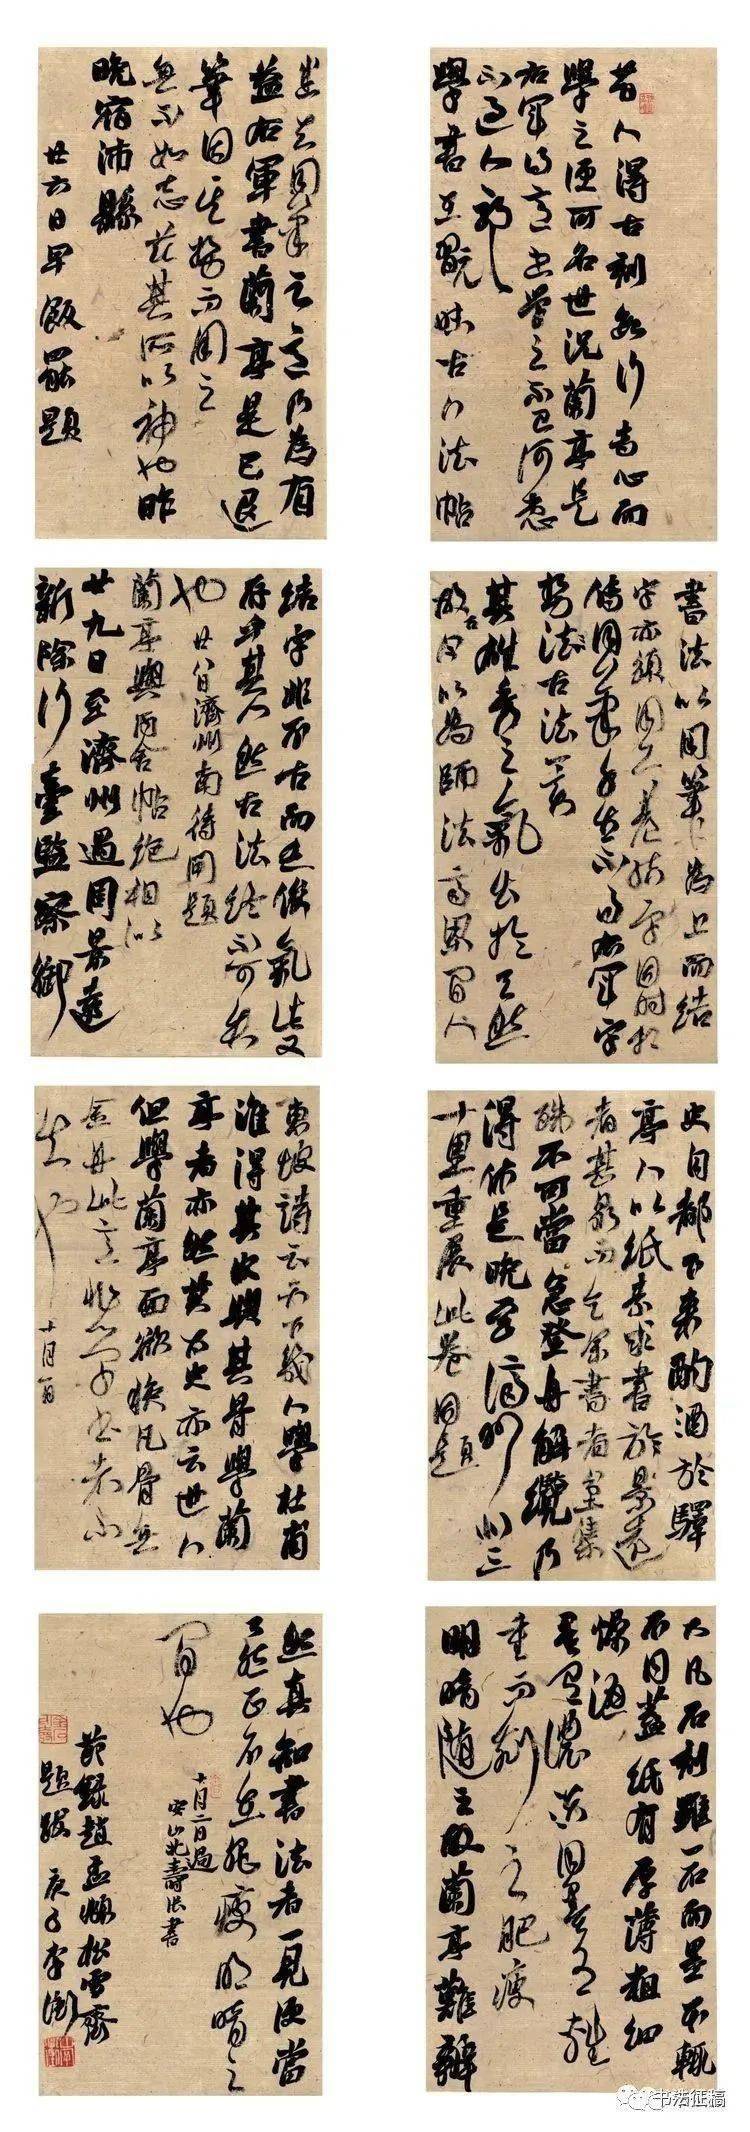 昔人得古刻數行專心而
學之便可名世況蘭亭是
右軍得意書學之不已何患
不過人耶
學書在玩味古人法帖
悉知用筆之意乃為有
益右軍書蘭亭是已退
筆因其勢而用之
無不如志茲其所以神也昨
晚宿沛縣
廿六日早飯罷題
書法以用筆為上而結
字亦須用工蓋結字因時相
傳用筆千古不易右軍字
勢法古法一變
其雄秀之氣出於天然
故古今以為師法齊梁間人
結字非不古而乏俊氣此又
存乎其人然古法終不可失
也
廿八日濟州南待閘題
蘭亭與丙舍帖絕相似
廿九日至濟州遇周景遠
新除行臺監察御
史自都下來酌酒於驛
亭人以紙素求書於景遠
者甚眾而乞余書者坌集
殊不可當急登舟解纜乃
得休是晚至濟州北三
十里重展此卷因題
東坡詩云天下幾人學杜甫
誰得其皮與其骨學蘭
亭者亦然黃太史亦云世人
但學蘭亭面欲換凡骨無
金丹此意非學書者不
知也
十月一日
大凡石刻雖一石而墨本輒
不同蓋紙有厚薄粗細
燥濕
墨有濃淡用墨有輕
重而刻之肥瘦
明暗隨之故蘭亭難辨
然真知書法者一見便當
了然正不在肥瘦明暗之
間也
十月二日過
安山北壽張書
節錄趙孟頫松雪齋
題跋 庚子李
书法征稿